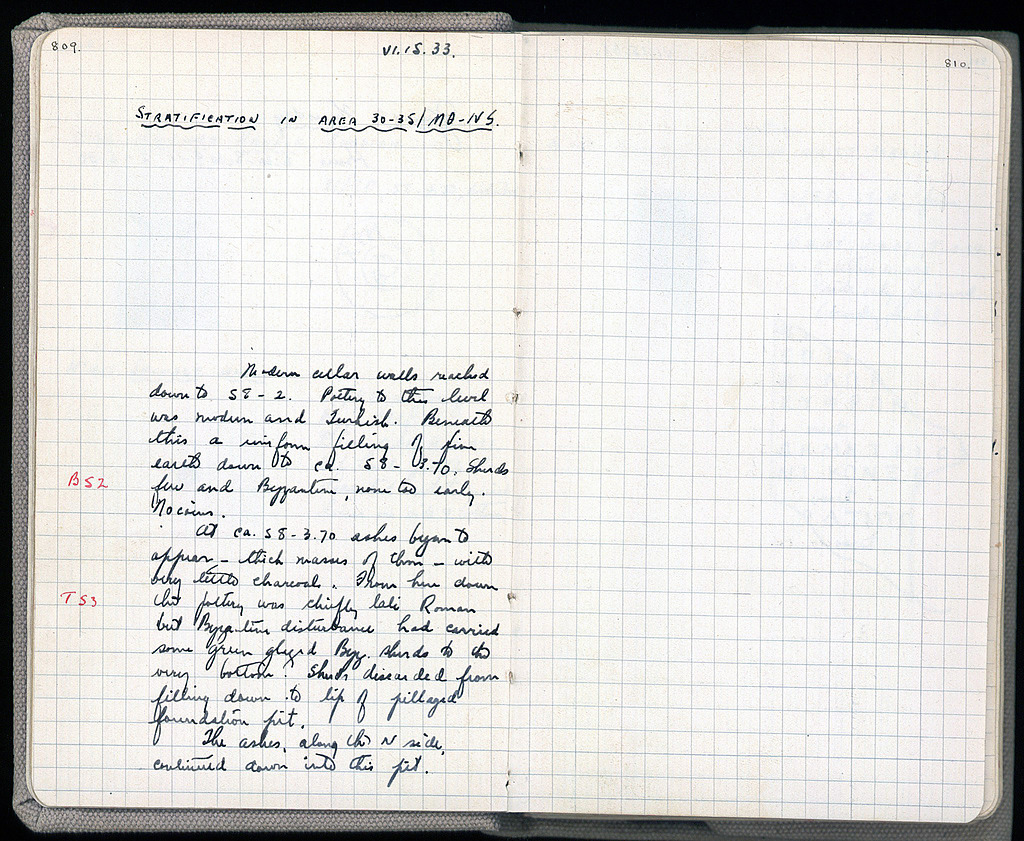 809.
VI.15.33.
810.
STRATIFICATION IN AREA 30-35/ MΘ-NS.
Modern cellar walls reached
down to 58-2. Pottery to this level
was modern and Turkish. Beneath
this a uniform filling of fine
earth down to ca. 58-3.70. Sherds
BS2
few and Byzantine, none too early.
No coins.
At ca. 58-3.70 ashes began to
appear - thick masses of them - with
very little charcoal. From here down
TS3
the pottery was chiefly late Roman
but Byzantine disturbance had carried
some green glazed Byz. sherds to the
very bottom. Sherds discarded from
filling down to lip of pillaged
foundation pit.
The ashes, along the N side,
continued down into this pit.